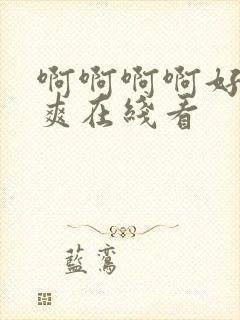 啊啊啊啊好
爽在线看
藍鸞